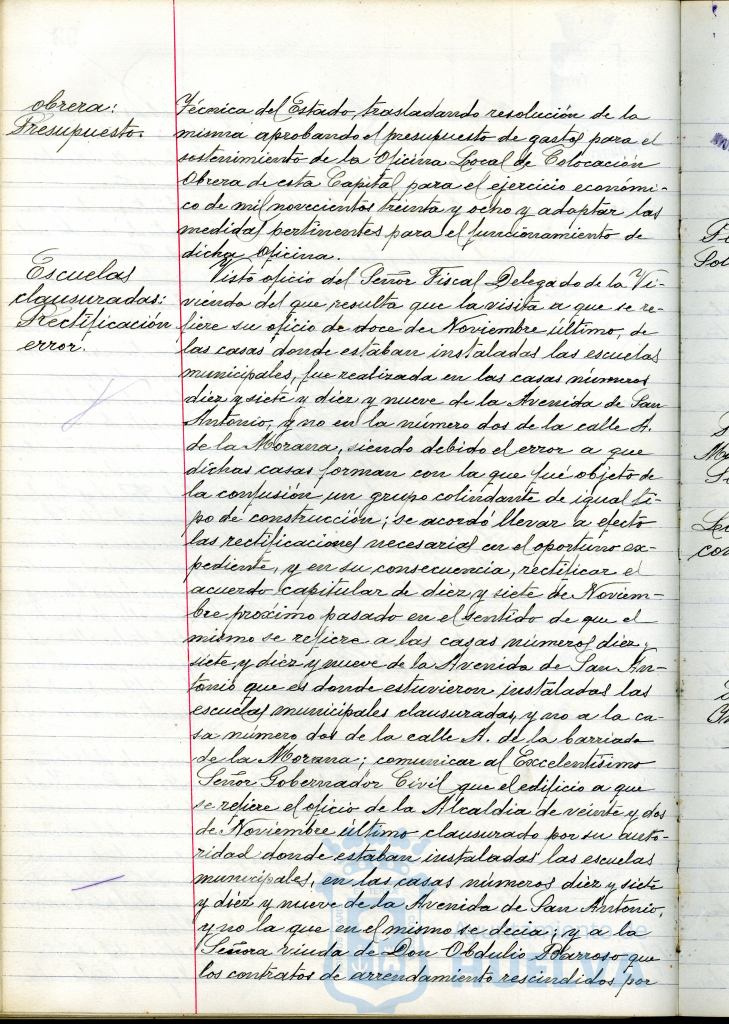 obrera:
Presupuesto.
Técnica del Estado, trasladando resolución de la
misma aprobando el presupuesto de gastos para el
sostenimiento de la Oficina Local de Colocación
Obrera de esta Capital para el ejercicio económi-
co de mil novecientos treinta y ocho y adoptar las
medidas pertinentes para el funcionamiento de
dicha Oficina.
Escuelas
clausuradas:
Rectificación
error.
Visto oficio del Señor Fiscal Delegado de la Vi-
vienda del que resulta que la visita a que se re-
fiere su oficio de doce de Noviembre último, de
las casas donde estaban instaladas las escuelas
municipales, fue realizada en las casas números
diez y siete y diez y nueve de la Avenida de San
Antonio, y no en la número dos de la calle A.
de la Morana, siendo debido el error a que
dichas casas forman con la que fué objeto de
la confusión un grupo colindante de igual ti-
po de construcción; se acordó llevar a efecto
las rectificaciones necesarias en el oportuno ex-
pediente, y en su consecuencia, rectificar el
acuerdo capitular de diez y siete de Noviem-
bre próximo pasado en el sentido de que el
mismo se refiere a las casas números diez y
siete y diez y nueve de la Avenida de San An-
tonio que es donde estuvieron instaladas las
escuelas municipales clausuradas, y no a la ca-
sa número dos de la calle A. de la barriada
de la Morana; comunicar al Excelentísimo
Señor Gobernador Civil que el edificio a que
se refiere el oficio de la Alcaldía de veinte y dos
de Noviembre último clausurado por su auto-
ridad donde estaban instaladas las escuelas
municipales, en las casas números diez y siete
y diez y nueve de la Avenida de San Antonio,
y no la que en el mismo se decia; y a la
Señora viuda de Don Obdulio Barroso que
los contratos de arrendamiento rescindidos por